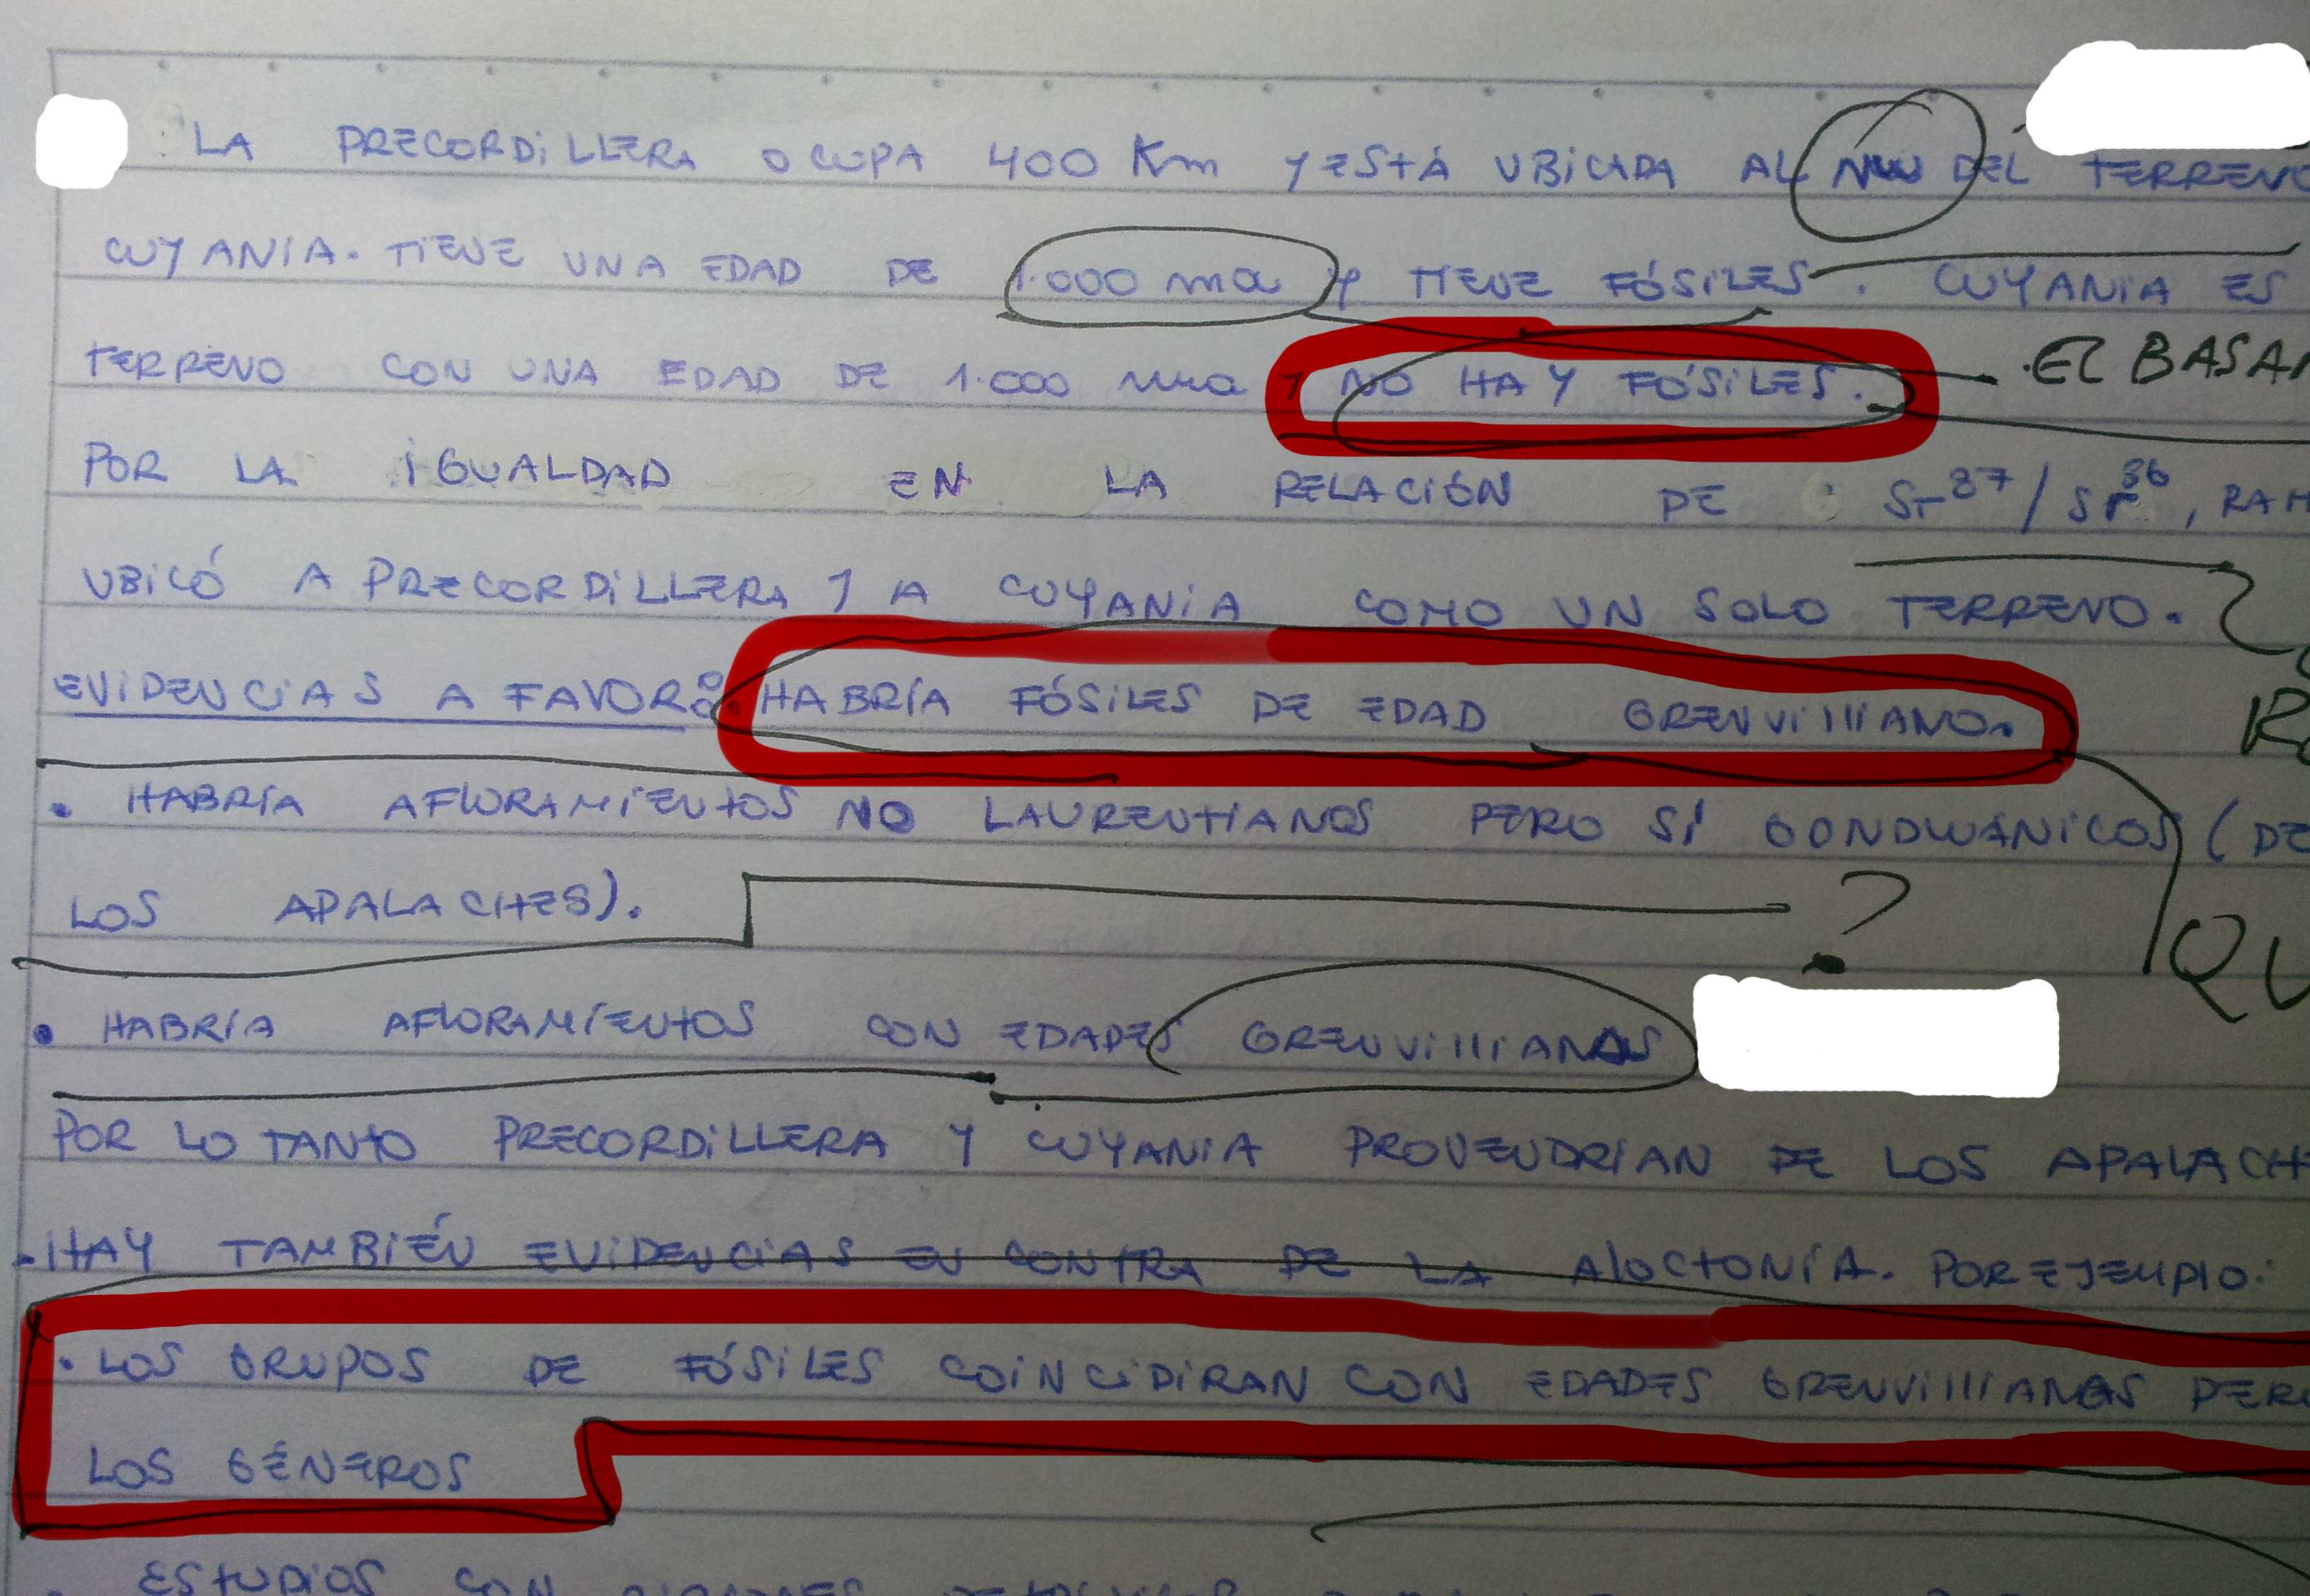 LA PRECORDILLERA OCUPA 400 Km Y ESTÁ UBICADA AL NW DEL TERRENO
CUYANIA. TIENE UNA EDAD DE 1.000 ma Y TIENE FÓSILES. CUYANIA ES
TERRENO CON UNA EDAD DE 1.000 ma Y NO HAY FÓSILES. . EL BASAM
POR LA IGUALDAD EN LA RELACIÓN DE Sr87/Sr86, RAM
UBICÓ A PRECORDILLERA Y A CUYANIA COMO UN SOLO TERRENO.
EVIDENCIAS A FAVOR: • HABRÍA FÓSILES DE EDAD GRENVIllIANO.
• HABRÍA AFLORAMIENTOS NO LAURENTIANOS PERO SÍ GONDWÁNICOS (DE
LOS APALACHES). ?
QU
• HABRÍA AFLORAMIENTOS CON EDADES GRENVIllIANAS
POR LO TANTO PRECORDILLERA Y CUYANIA PROVENDRÍAN DE LOS APALACH
. HAY TAMBIÉN EVIDENCIAS EN CONTRA DE LA AlOCTONÍA. POR EJEMPlO:
• LOS GRUPOS DE FÓSILES COINCIDIRAN CON EDADES GRENVIllIANAS PERO
LOS GÉNEROS
ESTUDIOS CON